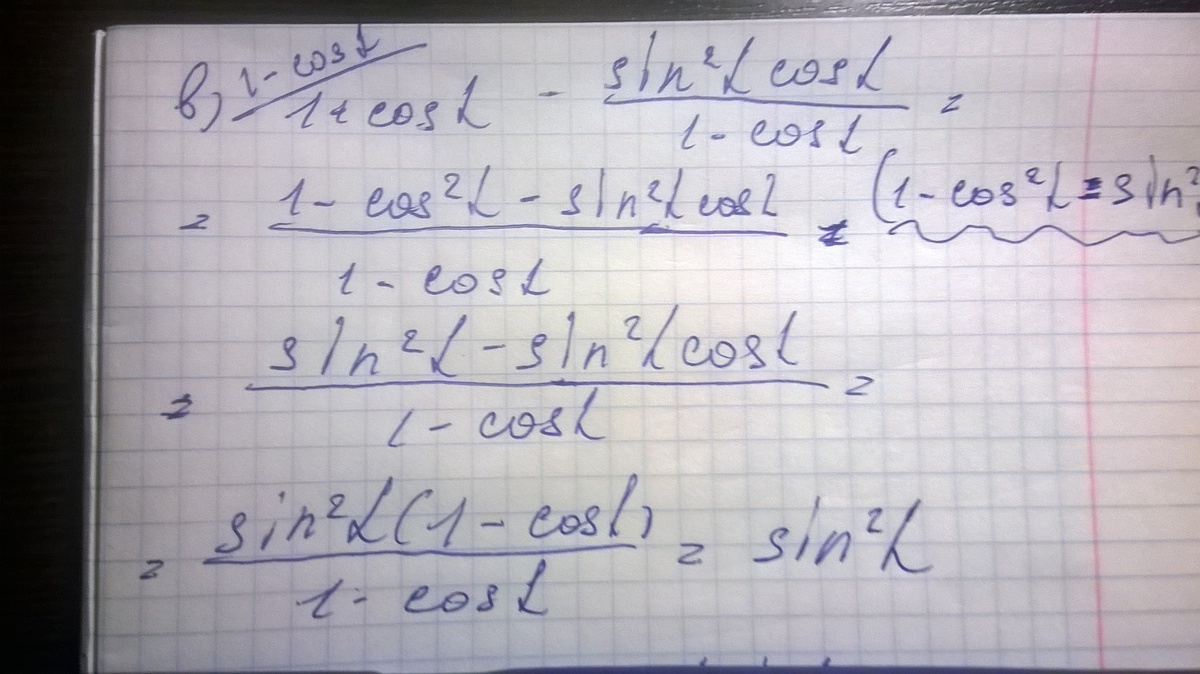 в) 1-cosα / 1+cosα - sin²α cosα / 1-cosα =
= 1-cos²α-sin²α cosα / 1-cosα = (1-cos²α=sin²
= sin²α-sin²α cosα / 1-cosα =
= sin²α(1-cosα) / 1-cosα = sin²α